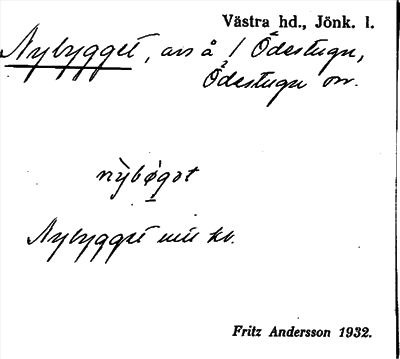 Västra hd., Jönk. l.
Nybygget, avs å 1/2 Ödestugu,
Ödestugu sn.
nỳbǿgət
Nybygget mtl kb.
Fritz Andersson 1932.